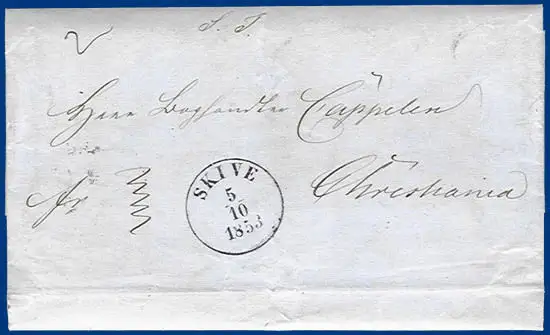 S. T.
Herr Boghandler Cappelen
Christiania
fr
SKIVE
5
10
1853